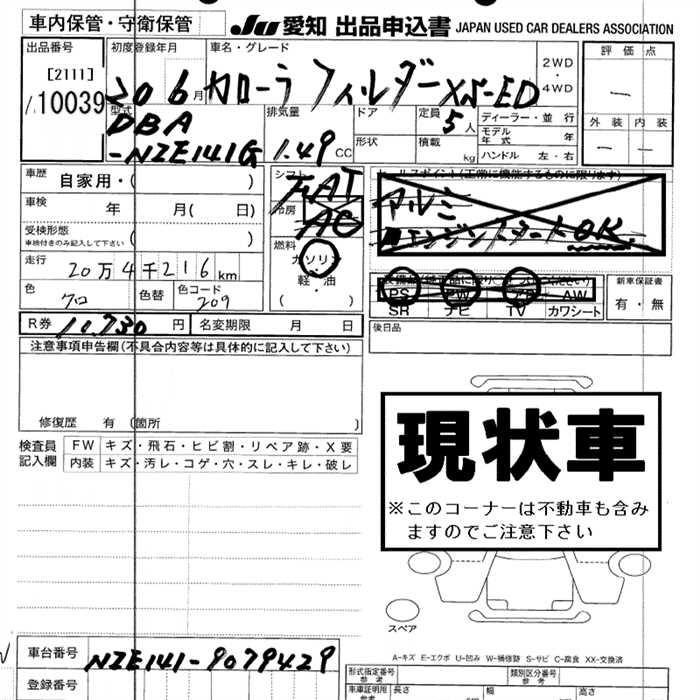 車内保管・守衛保管
JU 愛知 出品申込書 JAPAN USED CAR DEALERS ASSOCIATION
出品番号 [2111] 10039
初度登録年月 20 6 月
車名・グレード カローラフィルダー XS-ED
2WD・4WD
評価点 —
外装 — 内装 —
型式 DBA-NZE141G
排気量 1.49 CC
ドア 形状
定員 5 人 積載 kg
ディーラー・並行
モデル年式 年
ハンドル 左・右
車歴 自家用・( )
車検 年 月( 日)
受検形態 車検付きのみ記入して下さい ( )
走行 20万4千216 km
色 クロ 色替 色コード 209
シフト AT
冷房 AC
燃料 ガソリン・軽・油 ( )
セールスポイント(正常に機能するものに限ります)
アルミ
エンジンスタートOK
PS PW AW
SR ナビ TV カワシート
新車保証書 有・無
後日品
R券 10,730 円 名変期限 月 日
注意事項申告欄(不具合内容等は具体的に記入して下さい)
修復歴 有 (箇所 )
検査員記入欄
FW キズ・飛石・ヒビ割・リペア跡・X要
内装 キズ・汚レ・コゲ・穴・スレ・キレ・破レ
現状車
※このコーナーは不動車も含み
ますのでご注意下さい
スペア
A-キズ E-エクボ U-凹み W-補修跡 S-サビ C-腐食 XX-交換済
車台番号 NZE141-9079429
登録番号
形式指定番号 参考
類別区分番号 参考
車庫証明用 参考 長さ 幅 高さ